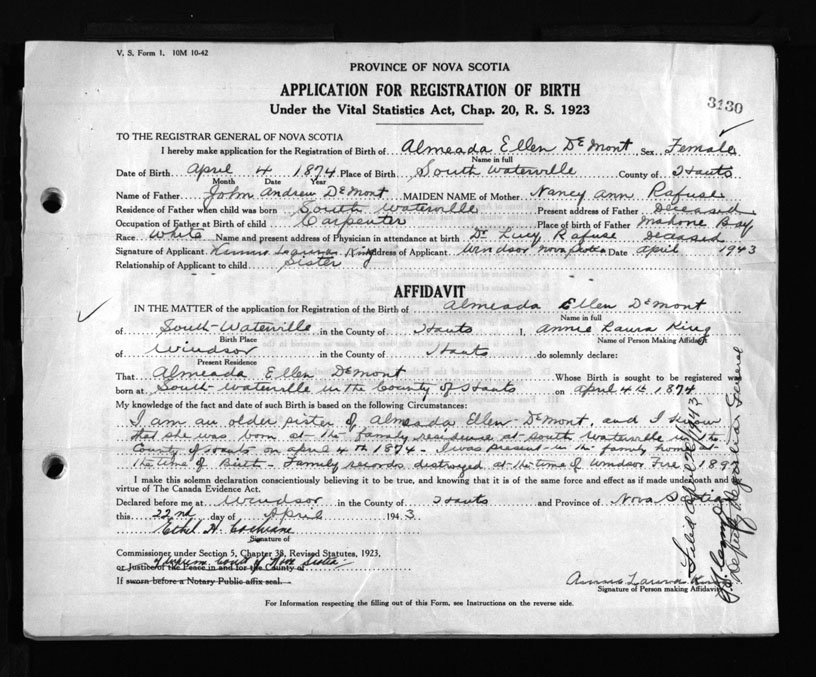 V. S. Form 1. 10M 10-42
PROVINCE OF NOVA SCOTIA
APPLICATION FOR REGISTRATION OF BIRTH
Under the Vital Statistics Act, Chap. 20, R. S. 1923
3130
TO THE REGISTRAR GENERAL OF NOVA SCOTIA
I hereby make application for the Registration of Birth of Almeada Ellen DeMont Sex Female
Name in full
Date of Birth April 4 1874 Place of Birth South Waterville County of Hants
Month Date Year
Name of Father John Andrew DeMont MAIDEN NAME of Mother Nancy Ann Rafuse
Residence of Father when child was born South Waterville Present address of Father Deceased
Occupation of Father at Birth of child Carpenter Place of birth of Father Mahone Bay
Race White Name and present address of Physician in attendance at birth Dr Lucy Rafuse deceased
Signature of Applicant King Address of Applicant Windsor Nova Scotia Date April 1943
Relationship of Applicant to child Sister
AFFIDAVIT
IN THE MATTER of the application for Registration of the Birth of Almeada Ellen DeMont
Name in full
of South-Waterville in the County of Hants I, Annie Laura King
Birth Place Name of Person Making Affidavit
of Windsor in the County of Hants do solemnly declare:
Present Residence
That Almeada Ellen DeMont Whose Birth is sought to be registered was
born at South-Waterville in the County of Hants on April 4th 1874
My knowledge of the fact and date of such Birth is based on the following Circumstances:
I am an older sister of Almeada Ellen DeMont, and I know
that she was born at the family residense at South Waterville in the
County of Hants on April 4th 1874 - I was present in the family home at
the time of Birth - Family records destroyed at the time of Windsor Fire 1897
I make this solemn declaration conscientiously believing it to be true, and knowing that it is of the same force and effect as if made under oath and by
virtue of The Canada Evidence Act.
Declared before me at Windsor in the County of Hants and Province of Nova Scotia
this 22nd day of April 1943
Ethel H. Cochrane
Signature of
Commissioner under Section 5, Chapter 38, Revised Statutes, 1923,
of Supreme Court of Nova Scotia
or Justice of the Peace in and for the County of
If sworn before a Notary Public affix seal.
Annie Laura King
Signature of Person making Affidavit
For Information respecting the filling out of this Form, see Instructions on the reverse side.
Filed 1943
Deputy Registrar General